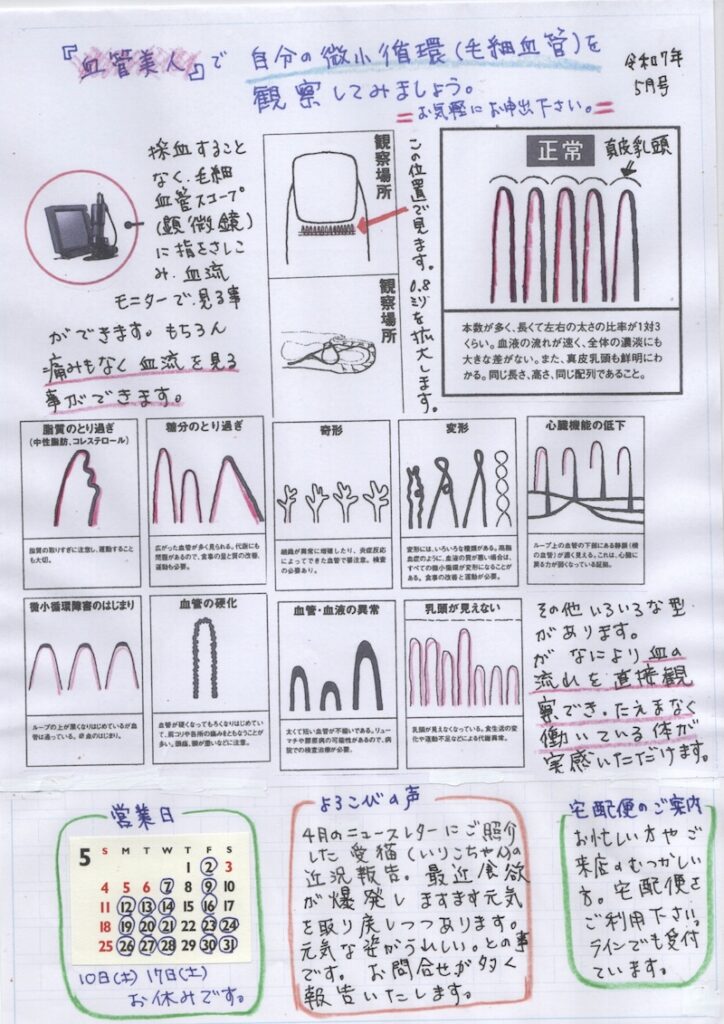 『血管美人』で 自分の微小循環(毛細血管)を
観察してみましょう。
令和7年
5月号
=お気軽にお申出下さい。=
採血すること
なく、毛細
血管スコープ
(顕微鏡)
に指をさしこ
み、血流
モニターで、見る事
ができます。もちろん
痛みもなく血流を見る
事ができます。
観察場所
観察場所
この位置で見ます。0.8ミリを拡大します。
正常
真皮乳頭
本数が多く、長くて左右の太さの比率が1対3
くらい。血液の流れが速く、全体の濃淡にも
大きな差がない。また、真皮乳頭も鮮明にわ
かる。同じ長さ、高さ、同じ配列であること。
脂質のとり過ぎ
(中性脂肪、コレステロール)
脂質の取りすぎに注意し、運動すること
も大切。
糖分のとり過ぎ
広がった血管が多く見られる。代謝にも
問題があるので、食事の量と質の改善、
運動も必要。
奇形
組織が異常に増殖したり、炎症反応
によってできた血管で要注意。検査
の必要あり。
変形
変形には、いろいろな種類がある。高脂
血症のように、血液の質が悪い場合は、
すべての微小循環が変形になることが
ある。食事の改善と運動が必要。
心臓機能の低下
ループ上の血管の下部にある静脈(横
の血管)が濃く見える。これは、心臓に
戻る力が弱くなっている証拠。
微小循環障害のはじまり
ループの上が黒くなりはじめているが血
管は通っている。瘀血のはじまり。
血管の硬化
血管が硬くなってもろくなりはじめてい
て、肩コリや各所の痛みをともなうことが
多い。頭痛、頭が重いなどに注意。
血管・血液の異常
太くて短い血管が不揃いである。リュー
マチや膠原病の可能性があるので、病
院での検査治療が必要。
乳頭が見えない
乳頭が見えなくなっている。食生活の変
化や運動不足などによる代謝異常。
その他いろいろな型
があります。
が なにより血の
流れを直接観
察でき、たえまなく
働いている体が
実感いただけます。
営業日
5 S M T W T F S
1 2 3
4 5 6 7 8 9 10
11 12 13 14 15 16 17
18 19 20 21 22 23 24
25 26 27 28 29 30 31
10日(土) 17日(土)
お休みです。
よろこびの声
4月のニュースレターにご紹介
した愛猫(いりこちゃん)の
近況報告。最近食欲
が爆発しますます元気
を取り戻しつつあります。
元気な姿がうれしい。との事
です。お問合せが多く
報告いたします。
宅配便のご案内
お忙しい方やご
来店のむつかしい
方。宅配便を
ご利用下さい。
ラインでも受付
ています。